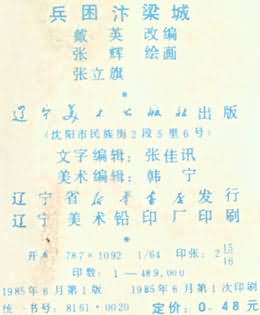 兵困汴梁城
戴英 改编
张辉 绘画
张立旗
*
辽宁美术出版社出版
(沈阳市民族街2段5里6号)
文字编辑：张佳讯
美术编辑：韩宁
辽宁省新华书店发行
辽宁美术铅印厂印刷
*
开本 787×1092 1/64 印张：2 15/16
印数：1—489,000
1985年6月第1版 1985年6月第1次印刷
统一书号：8161·0020 定价：0.48元